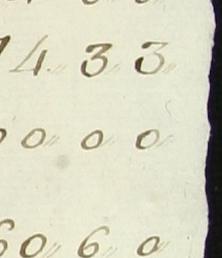 14 " 3 " 3 "
0 " 0 " 0 "
60 " 6 " 0